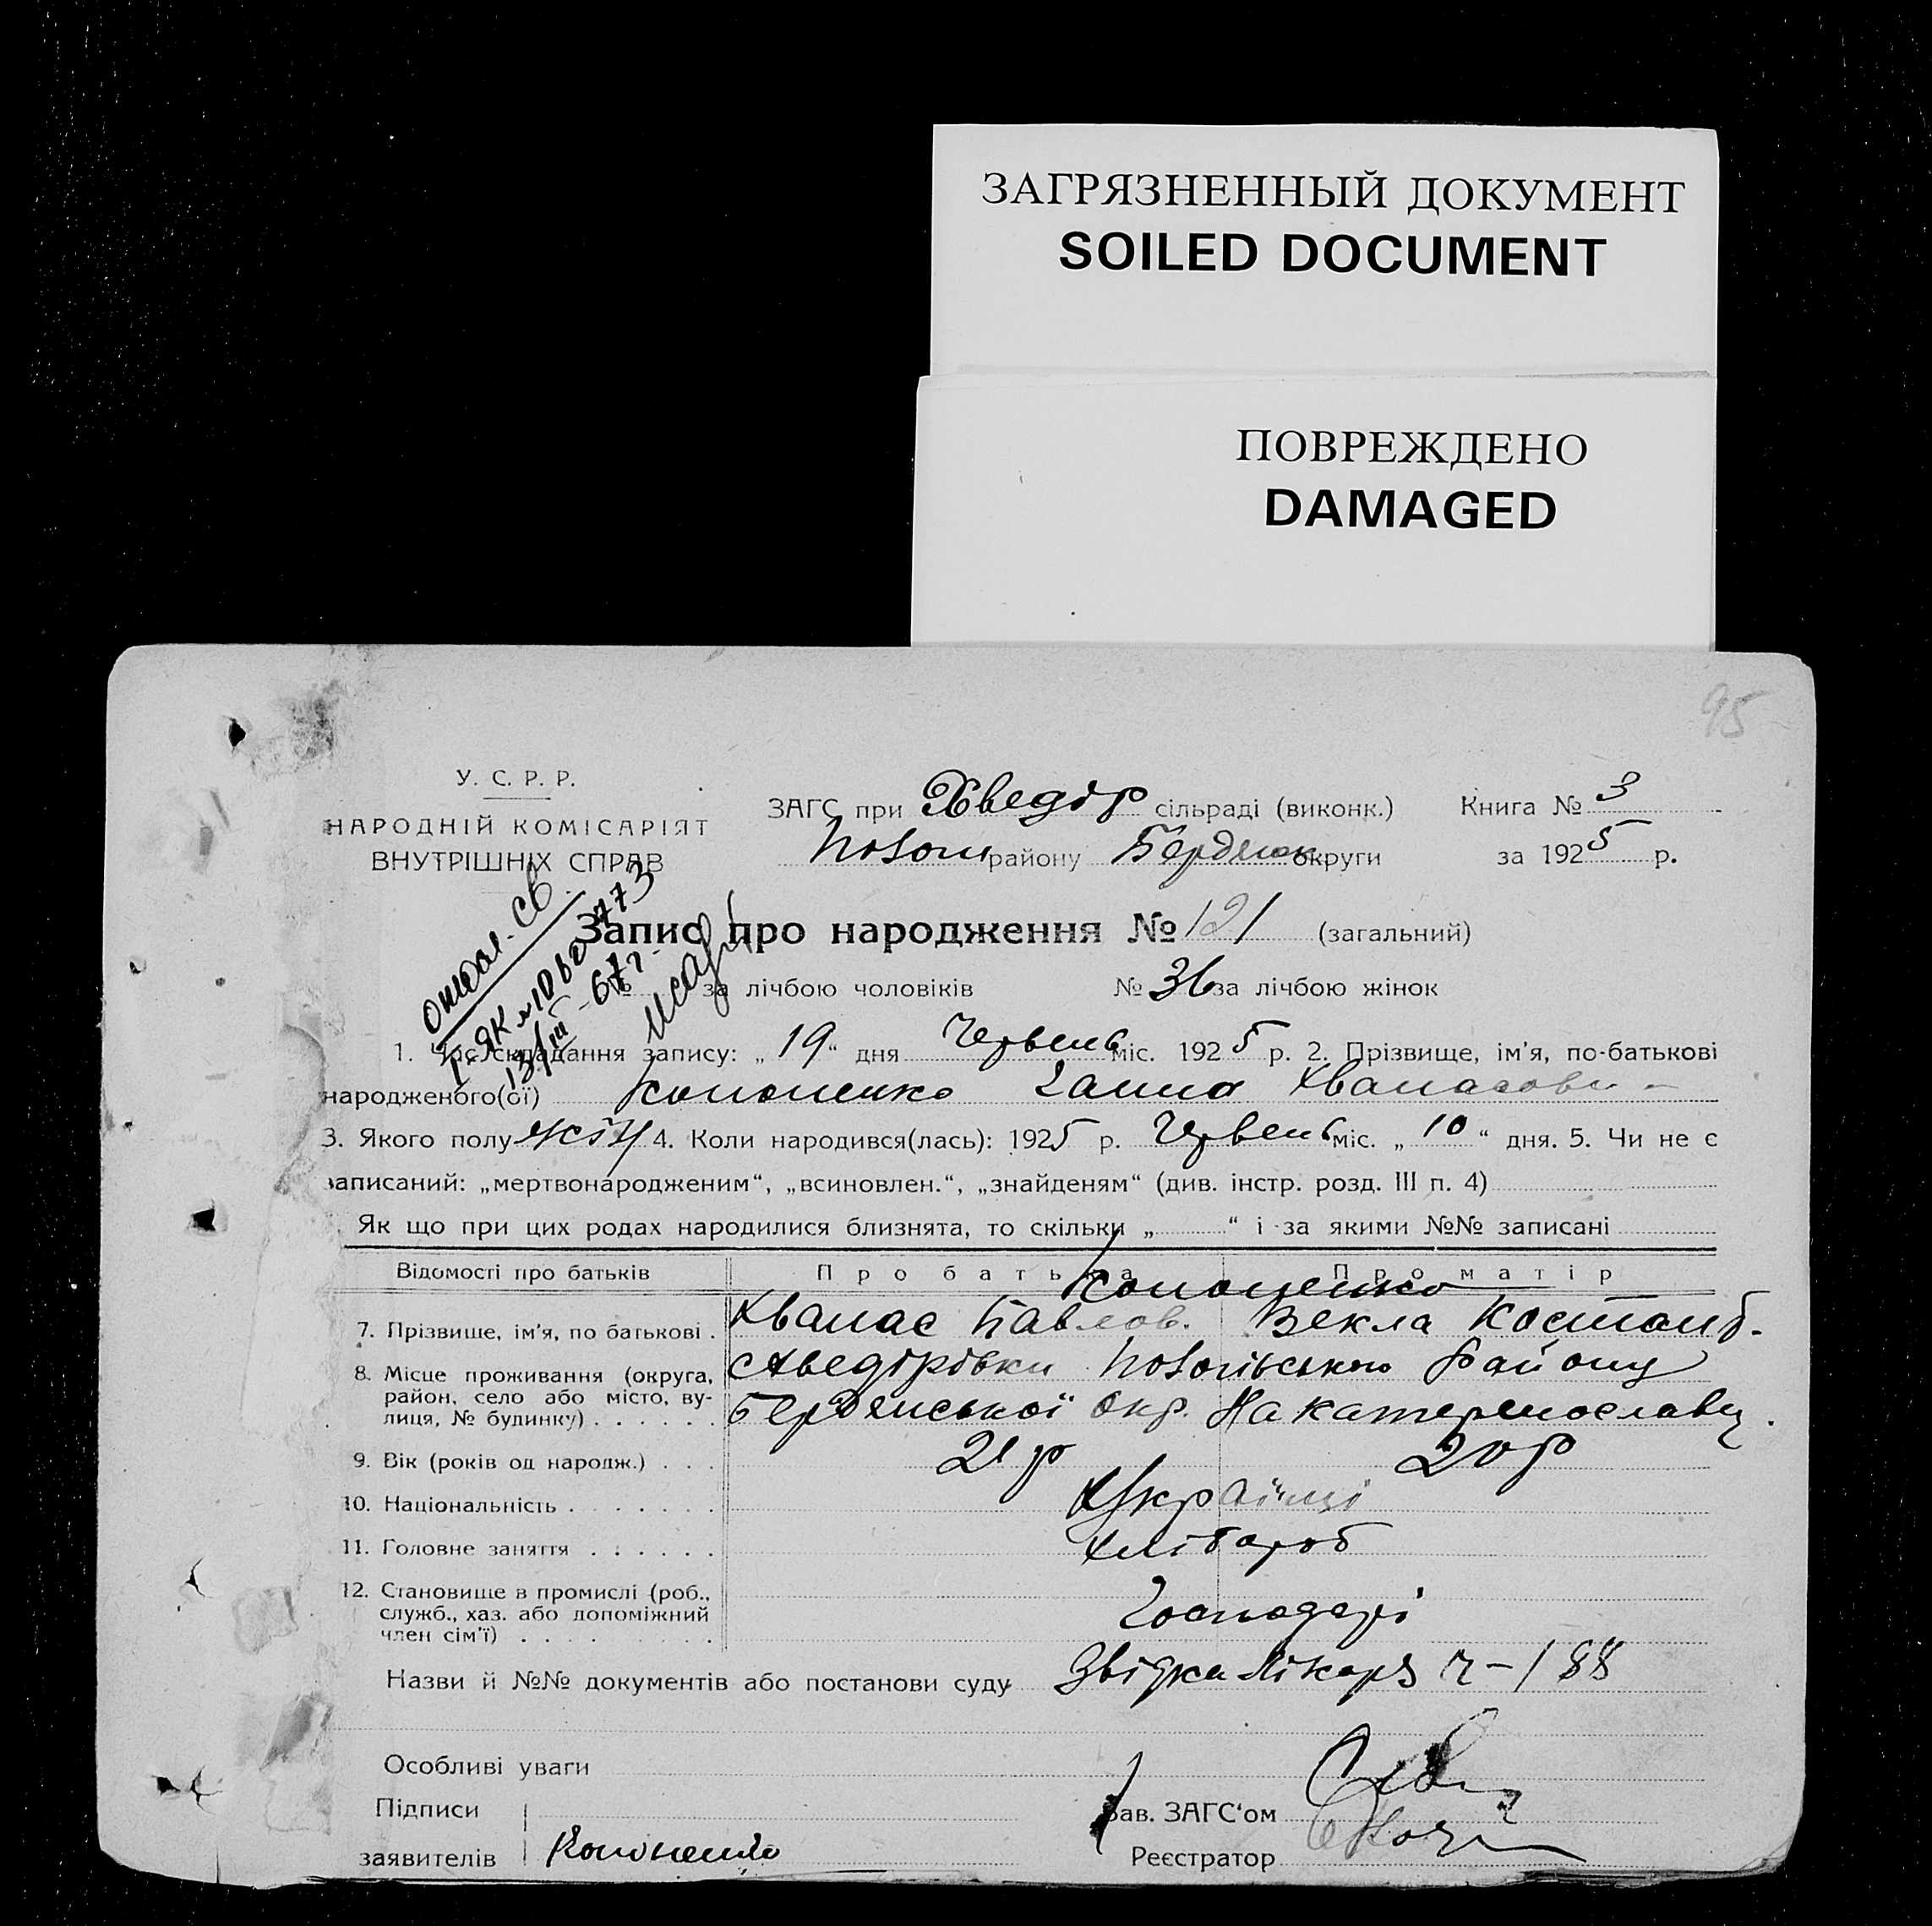 ЗАГРЯЗНЕННЫЙ ДОКУМЕНТ
SOILED DOCUMENT
ПОВРЕЖДЕНО
DAMAGED
95
У. С. Р. Р.
НАРОДНІЙ КОМІСАРІЯТ
ВНУТРІШНІХ СПРАВ
ЗАГС при Хведір сільраді (виконк.) Книга № 3
району Бердянок округи за 1925 р.
Запис про народження № 121 (загальний)
№ за лічбою чоловіків № 36 за лічбою жінок
1. Час складання запису: „19“ дня Червень міс. 1925 р. 2. Прізвище, ім'я, по-батькові
народженого(ої) Кононенко Ганна Хванасовн
3. Якого полу жін 4. Коли народився(лась): 1925 р. Червень міс. „10“ дня. 5. Чи не є
записаний: „мертвонародженим“, „всиновлен.“, „знайденям“ (див. інстр. розд. III п. 4)
Як що при цих родах народилися близнята, то скільки „ “ і за якими №№ записані
Відомості про батьків Про батька Про матір
Кононенко
7. Прізвище, ім'я, по батькові . Хванас Павлов. Векла Костант.
8. Місце проживання (округа, район, село або місто, вулиця, № будинку) . . . . . . Хведірівки району
Бердянської окр. На Катеренославщ.
9. Вік (років од народж.) . . . 21 р 20 р
10. Національність . . . . . . . Українці
11. Головне заняття . . . . . . Хлібороб
12. Становище в промислі (роб., служб., хаз. або допоміжний член сім'ї) . . . . Господарі
Назви й №№ документів або постанови суду Звідка Лікаря ч-188
Особливі уваги
Підписи
Зав. ЗАГС'ом
заявителів Кононенко Реєстратор